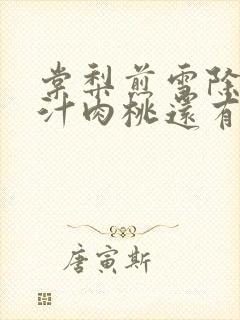 棠梨煎雪除
汁肉桃還有
唐寅斯